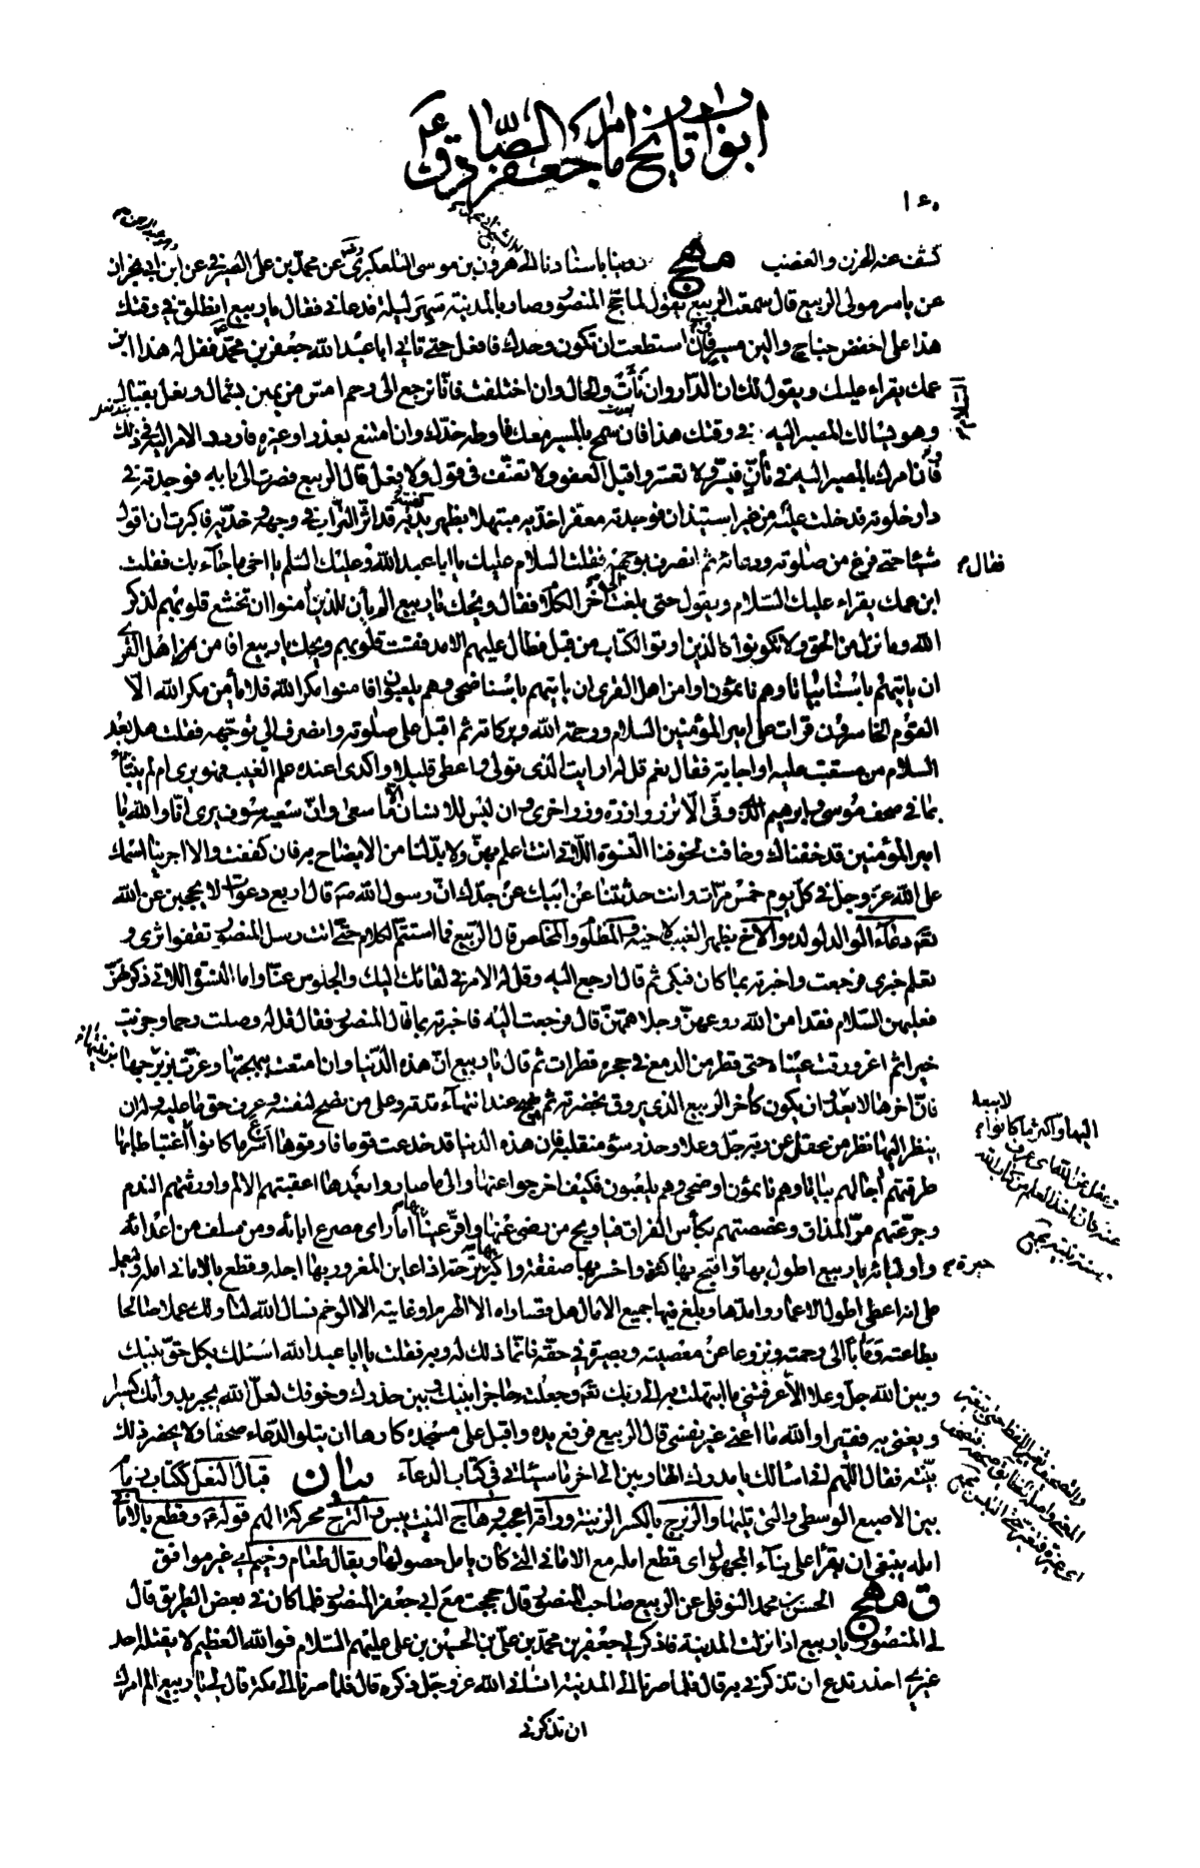 ابواب تاريخ الامام جعفر الصادق ع
١٤٠
كشف عنه الحزن والغضب مهج روينا باسنادنا الى هرون بن موسى التلعكبرى رضى عن محمد بن على الصيرفى عن ابن ابى نجران
عن ياسر مولى الربيع قال سمعت الربيع يقول لما حج المنصور وصار بالمدينة سهر ليلة فدعانى فقال يا ربيع انطلق فى وقتك
هذا على اخفض جناح والين مسير فان استطعت ان تكون وحدك فافعل حتى تاتى ابا عبد الله جعفر بن محمد فقل له هذا ابن
عمك يقراء عليك ويقول لك ان الدار وان نأت والحال وان اختلفت فانا نرجع الى رحم امس من يمين بشمال ونعل بقبال
وهو يسالك المصير اليه فى وقتك هذا فان سمح بالمسير معك فاوطه خدك وان امتنع بعذر او غيره فاردد الامر اليه فى ذلك
فان امرك بالمصير اليه فى تأن فيسر ولا تعسر واقبل العفو ولا تعنف فى قول ولا فعل قال الربيع فصرت الى بابه فوجدته فى
دار خلوته فدخلت عليه من غير استيذان فوجدته معفرا خديه مبتهلا بظهر يديه قد اثر التراب فى وجهه وخديه فاكبرت ان اقول
شيئا حتى فرغ من صلوته ودعائه ثم انصرف بوجهه فقلت السلام عليك يا ابا عبد الله وعليك السلم يا اخى ما جاء بك فقلت
فقال
ابن عمك يقراء عليك السلام ويقول حتى بلغت اخر الكلام فقال ويحك يا ربيع الم يأن للذين امنوا ان تخشع قلوبهم لذكر
الله وما نزل من الحق ولا تكونوا كالذين اوتوا الكتاب من قبل فطال عليهم الامد فقست قلوبهم ويحك يا ربيع افامن اهل القرى
ان ياتيهم باسنا بياتا وهم نائمون او امن اهل القرى ان ياتيهم باسنا ضحى وهم يلعبون افامنوا مكر الله فلا يأمن مكر الله الا
القوم الخاسرون قرات على امير المؤمنين السلام ورحمة الله وبركاته ثم اقبل على صلوته وانصرف الى توجهه فقلت هل بعد
السلام من مستعتب عليه او اجابة فقال نعم قل له افرايت الذى تولى واعطى قليلا واكدى اعنده علم الغيب فهو يرى ام لم ينبأ
بما فى صحف موسى وابرهيم الذى وفى الا تزر وازرة وزر اخرى وان ليس للانسان الا ما سعى وان سعيه سوف يرى انا والله يا
امير المؤمنين قد خفناك وخافت لخوفنا النسوة اللاتى انت اعلم بهن ولا بد لنا من الايضاح به فان كففت والا اجرينا اسمك
على الله عز وجل فى كل يوم خمس مرات وانت حدثتنا عن ابيك عن جدك ان رسول الله ص قال اربع دعوات لا يحجبن عن الله
تعم دعاء الوالد لولده والاخ بظهر الغيب لاخيه والمظلوم والمخلص قال الربيع فما استتم الكلام حتى اتت رسل المنصور تقفوا اثرى و
تعلم خبرى فرجعت واخبرته بما كان فبكى ثم قال ارجع اليه وقل له الامر فى لقائك اليك والجلوس عنا واما النسوة اللاتى ذكرتهن
فعليهن السلام فقد امن الله روعهن وجلا همهن قال فرجعت اليه فاخبرته بما قال المنصور فقال قل له وصلت رحما وجزيت
خيرا ثم اغرورقت عيناه حتى قطر من الدمع فى حجره قطرات ثم قال يا ربيع ان هذه الدنيا وان امتعت ببهجتها وغرت بزبرجها
فان اخرها لا يعدو ان يكون كاخر الربيع الذى يروق بخضرته ثم يهيج عند انتهاء مدته وعلى من نصح لنفسه وعرف حق ما عليه وله ان
ينظر اليها نظر من عقل عن ربه جل وعلا وحذر سوء منقلبه فان هذه الدنيا قد خدعت قوما فارقوها اسرع ما كانوا اغتباطا بها
طرقتهم اجالهم بياتا وهم نائمون او ضحى وهم يلعبون فكيف اخرجوا عنها والى ما صاروا بعدها اعقبتهم الالم واورثتهم الندم
وجرعتهم مر المذاق وغصصتهم بكأس الفراق فيا ويح من رضى عنها او اقر عينا بها اما راى مصرع ابائه ومن سلف من اعدائه
واوليائه يا ربيع اطول بها واقبح بها كرة واخسر بها صفقة واكبر بها ترحة اذا عاين المغرور بها اجله وقطع بالامانى امله وليعمل
حيرة
على انه اعطى اطول الاعمار وامدها وبلغ فيها جميع الامال هل قصاراه الا الهرم او غايته الا الوخم نسال الله لنا ولك عملا صالحا
بطاعته ومآبا الى رحمته ونزوعا عن معصيته وبصيرة فى حقه فانما ذلك له وبه فقلت يا ابا عبد الله اسئلك بكل حق بينك
وبين الله جل وعلا الا عرفتنى ما ابتهلت به الى ربك تعم وجعلته حاجزا بينك وبين حذرك وخوفك لعل الله يجبر بدوائك كسيرا
ويغنى به فقيرا والله ما اعنى غير نفسى قال الربيع فرفع يده واقبل على مسجده كارها ان يتلو الدعاء صحفا ولا يحضر ذلك
بنية فقال اللهم انى اسالك يا مدرك الهاربين الى اخر ما سياتى فى كتاب الدعاء بيان قبال النعل ككتاب زمام
بين الاصبع الوسطى والتى تليها والزبرج بالكسر الزينة وراقه اعجبه وهاج النبت يبس والترح محركة الهم قوله ع وقطع بالامانى
امله ينبغى ان يقرأ على بناء المجهول اى قطع امله مع الامانى التى كان يامل حصولها ويقال طعام وخيم اى غير موافق
ق مهج الحسن بن محمد النوفلى عن الربيع صاحب المنصور قال حججت مع ابى جعفر المنصور فلما كان فى بعض الطريق قال
لى المنصور يا ربيع اذا نزلت المدينة فاذكر لى جعفر بن محمد بن على بن الحسين بن على عليهم السلام فوالله العظيم لا يقتله احد
غيرى احذر تدع ان تذكرنى به قال فلما صرنا الى المدينة انسانى الله عز وجل ذكره قال فلما صرنا الى مكة قال لى يا ربيع الم امرك
ان تذكرنى